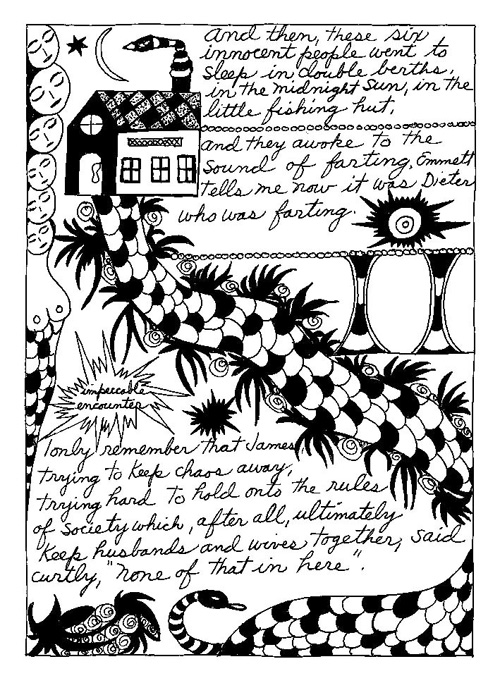 And then, these six
innocent people went to
sleep in double berths,
in the midnight sun, in the
little fishing hut,
and they awoke to the
sound of farting, Emmett
tells me now it was Dieter
who was farting.
impeccable
encounter
I only remember that James
trying to keep chaos away,
trying hard to hold onto the rules
of society which, after all, ultimately
keep husbands and wives together, said
curtly, "none of that in here".